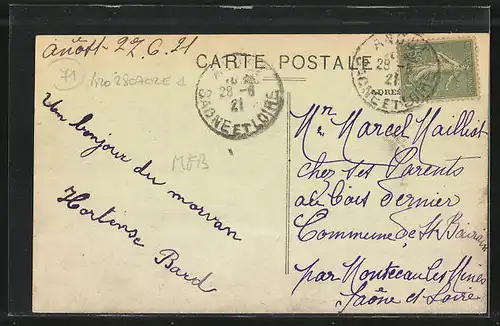 Anost 27.6.21
CARTE POSTALE
71
28-6
21
SAONE ET LOIRE
28-6
21
SAONE ET LOIRE
MFB
Un bonjour du morvan
Hortense Bard
Mr Marcel Mailliot
chez ses Parents
au bois dernier
Commune de St
par Montceau les Mines
Saône et Loire